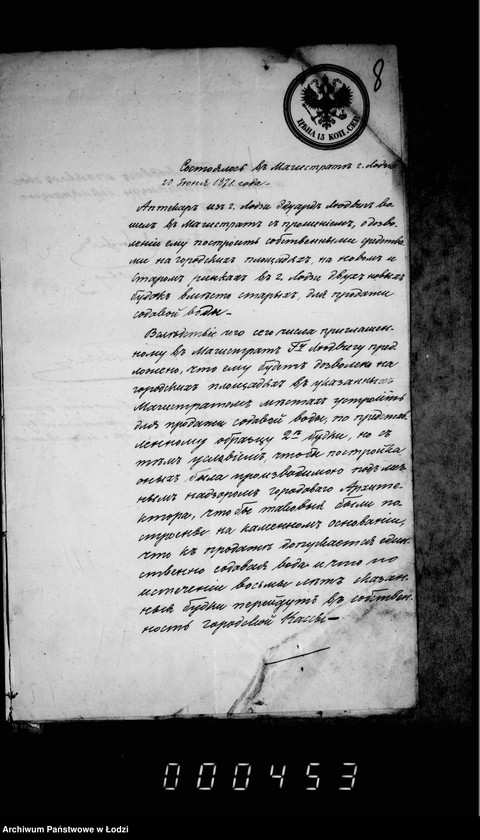 8
ЦѢНА 15 КОП. СЕР.
Состоялось въ Магистратѣ г. Лодзи
20 Іюня 1871 года.
Аптекарь изъ г. Лодзи Эдуардъ Людвигъ во
шелъ въ Магистратъ съ прошеніемъ, о дозво
леніи ему построить собственными средства
ми на городскихъ площадяхъ, на новомъ и
старомъ рынкахъ въ г. Лодзи двухъ новыхъ
будокъ вмѣсто старыхъ, для продажи
содовой воды.
Вслѣдствіе чего сего числа приглашен-
ному въ Магистратъ Гну Людвигу пред
ложено, что ему будетъ дозволено на
городскихъ площадяхъ въ указанныхъ
Магистратомъ мѣстахъ устроить
для продажи содовой воды, по представ
ленному образцу 2ѣ будки, но съ
тѣмъ условіемъ, чтобы постройка
оныхъ была производимою подъ лич
нымъ надзоромъ городоваго Архите-
ктора, чтобы таковыя были по
строены на каменномъ основаніи,
что къ продажѣ допускается един
ственно содовая вода и что по
истеченіи восьми лѣтъ сказан
ныя будки перейдутъ въ собствен-
ность городской Кассы.
000453
Archiwum Państwowe w Łodzi